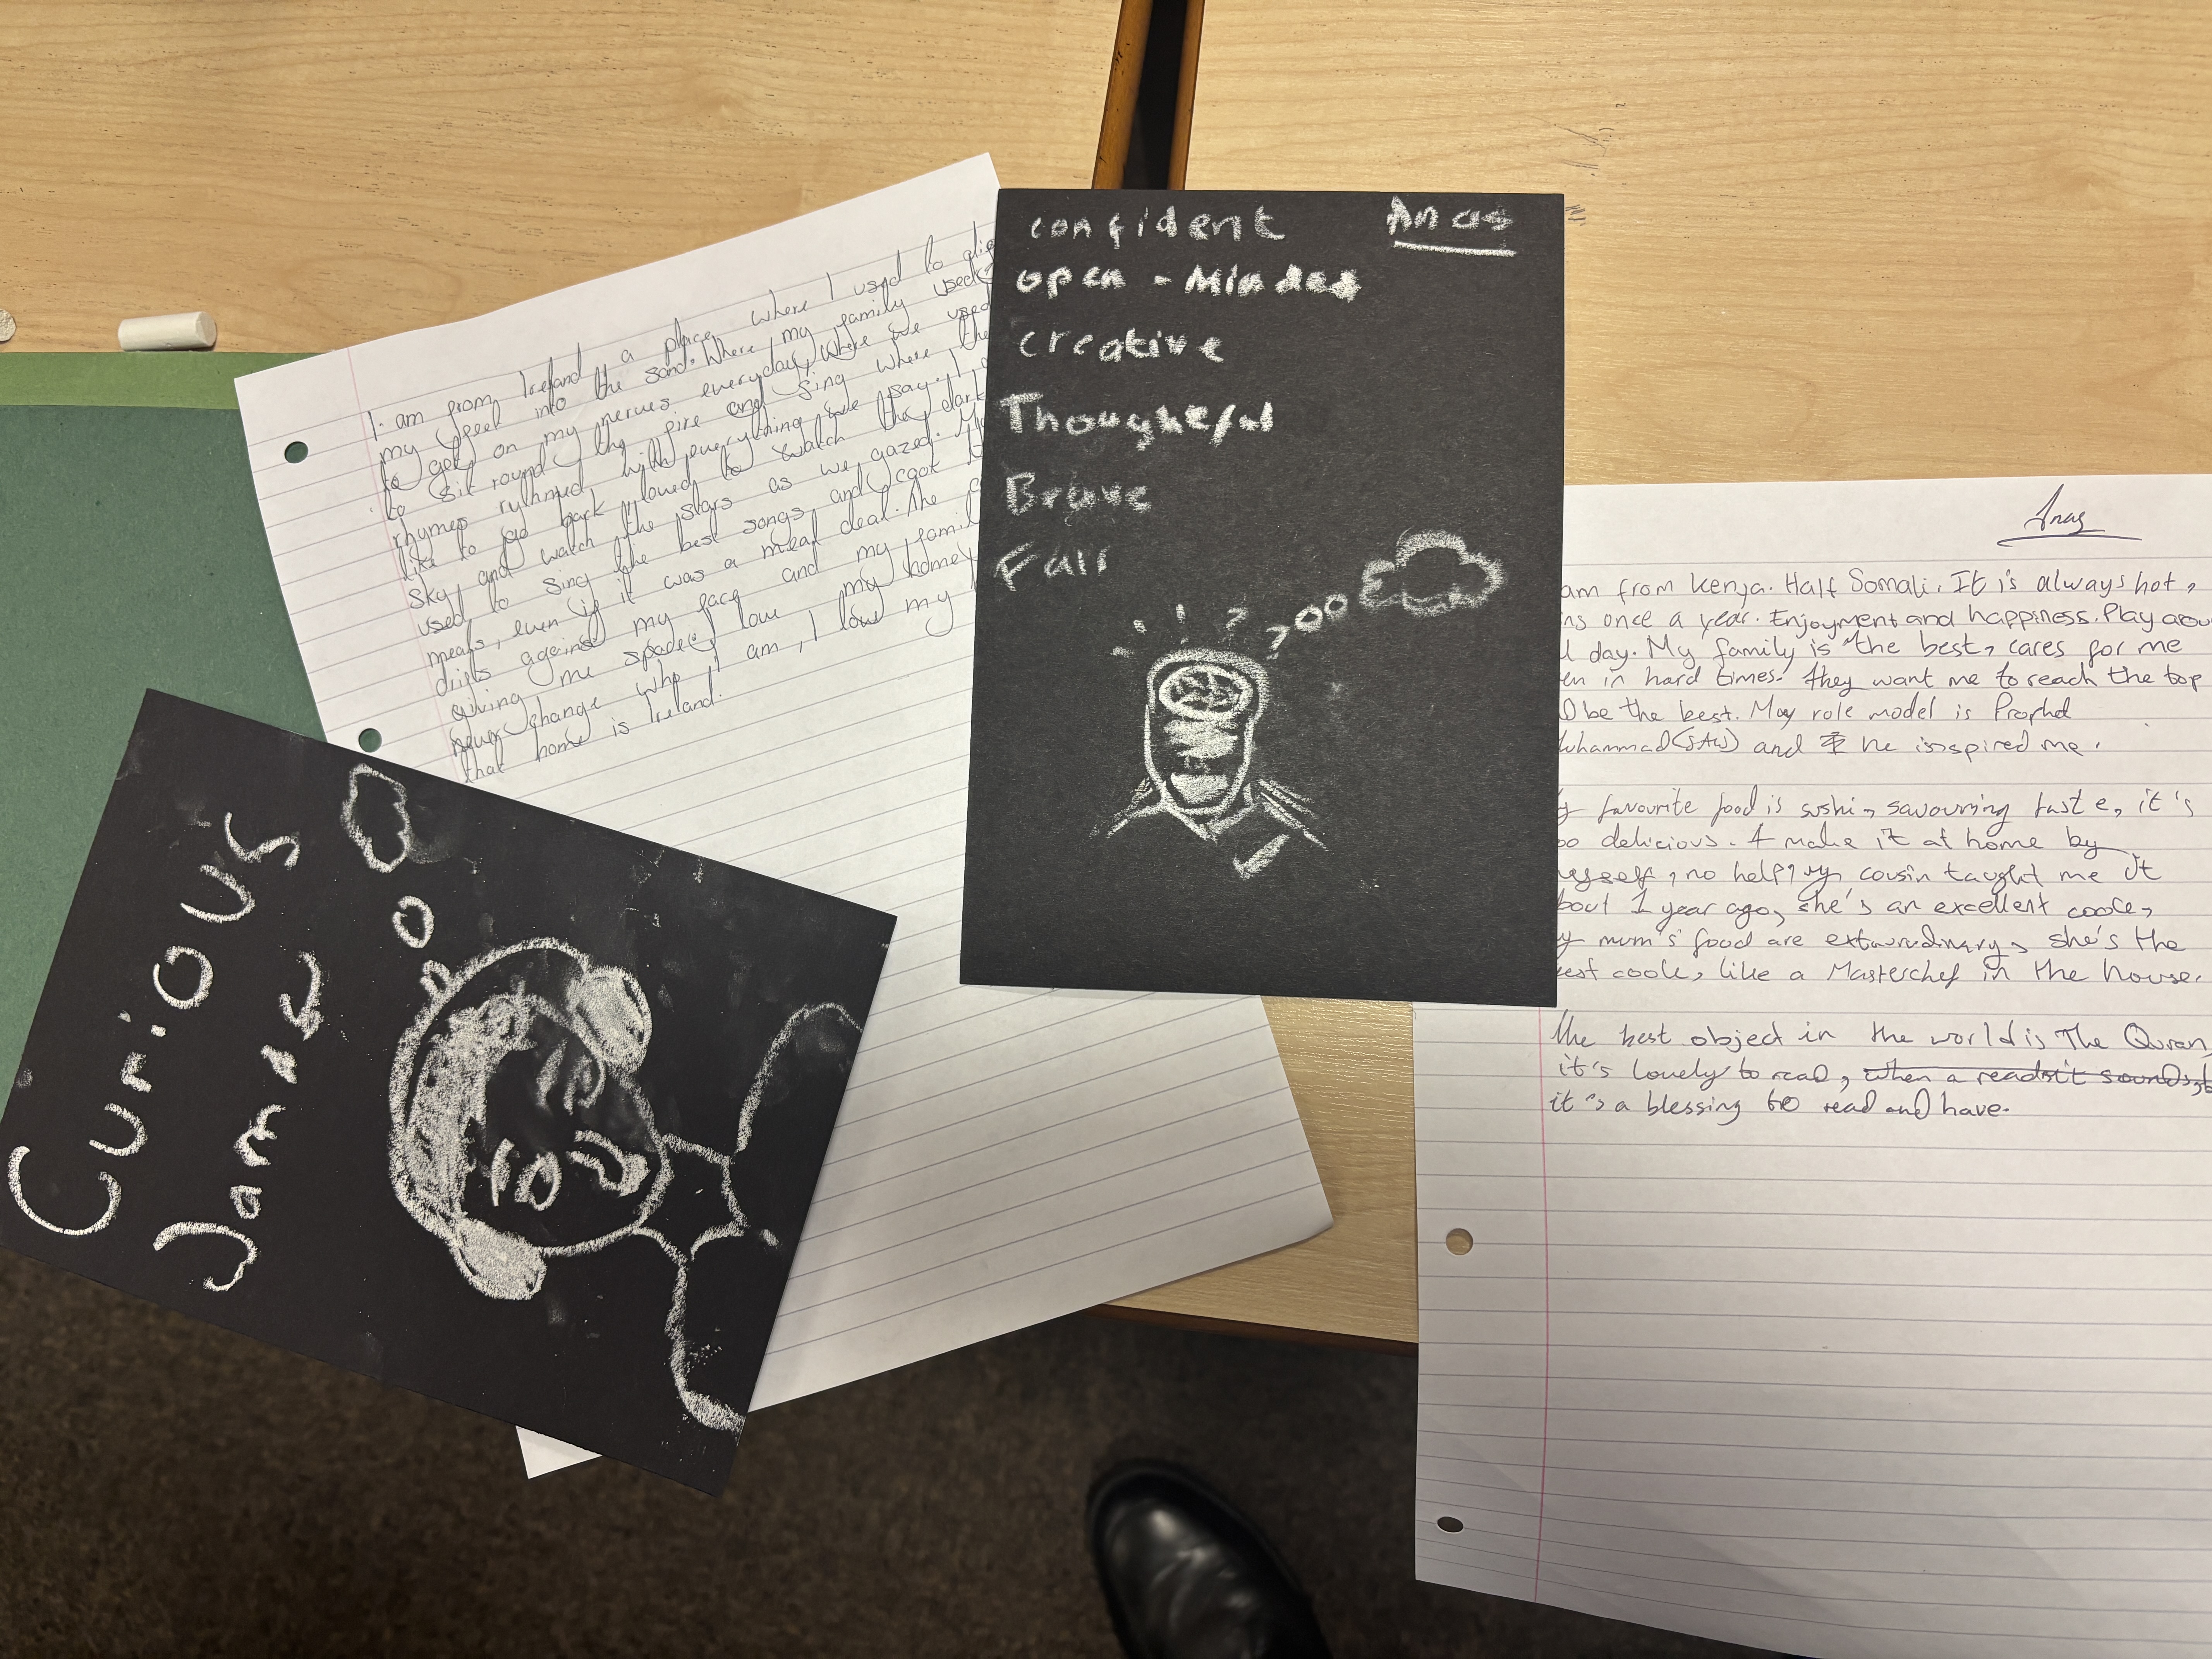 I am from Ireland a place where I used to
my feet into the sand. Where my family used
to get on my nerves everyday, Where we used
to sit round the fire and sing where the
rhymes ryhmed with everything we say. I
like to go back I loved to watch the dark
sky and watch the stars as we gazed.
used to sing the best songs and cook
meals, even if it was a meal deal. The
drifts against my face and my famil
giving me space, I love my home
never change who I am, I love my
that home is Ireland.
confident Anas
open - Minded
creative
Thoughtful
Brave
Fair
Curious
James
Anas
am from Kenya. Half Somali. It is always hot,
ns once a year. Enjoyment and happiness. Play arou
l day. My family is the best, cares for me
en in hard times. they want me to reach the top
D be the best. May role model is Prophet
uhammad (SAW) and he isnspired me.
y favourite food is sushi, savouring taste, it's
oo delicious. I make it at home by
myself, no help, my cousin taught me it
bout 1 year ago, she's an excellent cook,
y mum's food are extaurdinary, she's the
est cook, like a Masterchef in the house.
the best object in the world is The Quran,
it's lovely to read, when a reads it sounds
it's a blessing to read and have.